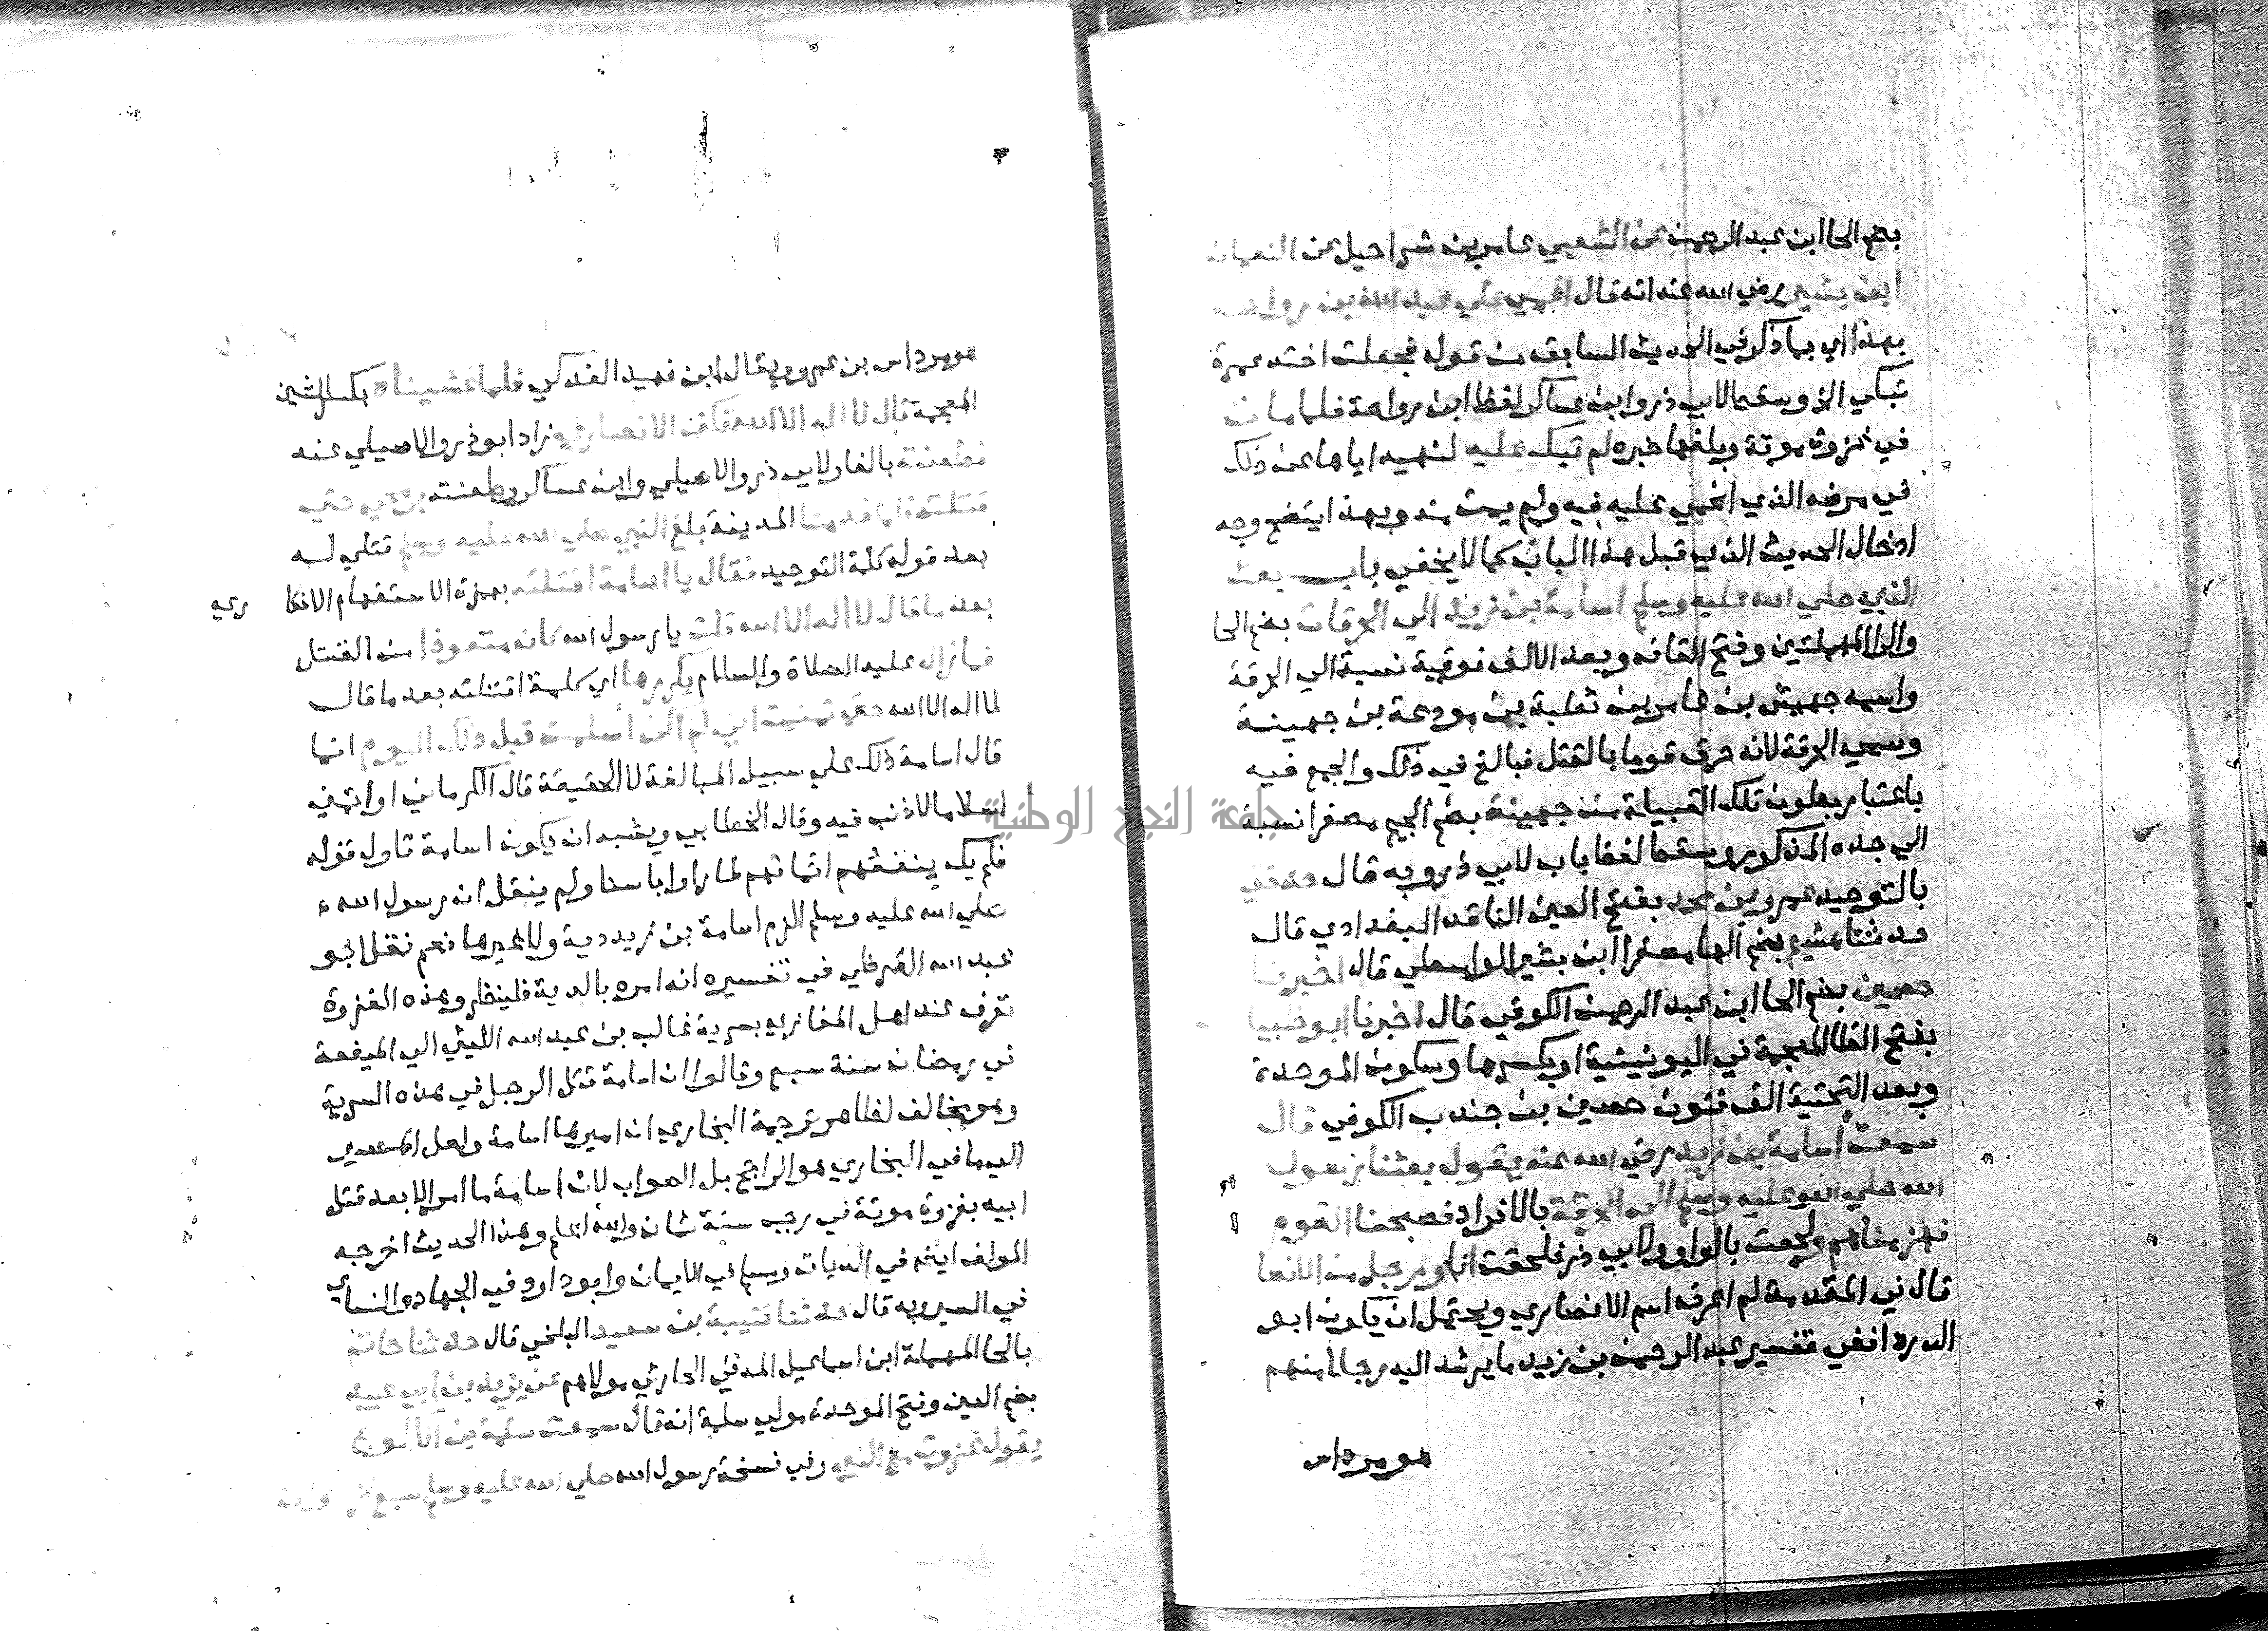 بضم الحا ابن عبد الرحمن عن الشعبي عامر بن شراحيل عن النعمان
ابن بشير رضي الله عنه انه قال اغمي علي عبد الله بن رواحه
بهذا اي بما ذكر في الحديث السابق من قوله فجعلت اخته عمرة
تبكي الخ وسقط لابي ذر وابن عساكر لفظ ابن رواحة فلما مات
في غزوة موتة وبلغها خبره لم تبك عليه لنهيه اياها عن ذلك
في مرضه الذي اغمي عليه فيه ولم يمت منه وبهذا يتضح وجه
ادخال الحديث الذي قبل هذا الباب كما لا يخفي باب بعث
النبي صلي الله عليه وسلم اسامة بن زيد الي الحرقات بضم الحا
والرا المهملتين وفتح القاف وبعد الالف فوقية نسبة الي الحرقة
واسمه جهيش بن عامر بن ثعلبة بن مودعة بن جهينة
وسمي الحرقة لانه حرق قوما بالقتل فبالغ في ذلك والجمع فيه
باعتبار بطون تلك القبيلة من جهينة بضم الجيم مصغرا نسبة
الي جده المذكور وسقط لفظ باب لابي ذر وبه قال حدثني
بالتوحيد عمرو بن محمد بفتح العين الناقد البغدادي قال
حدثنا هشيم بضم الها مصغرا ابن بشير الواسطي قال اخبرنا
حصين بضم الحا ابن عبد الرحمن الكوفي قال اخبرنا ابو ظبيا
بفتح الظا المعجمة في اليونينية او بكسرها وسكون الموحدة
وبعد التحتية الف فنون حصين بن جندب الكوفي قال
سمعت اسامة بن زيد رضي الله عنه يقول بعثنا رسول
الله صلي الله عليه وسلم الي الحرقة بالافراد فصبحنا القوم
فهزمناهم ولحقت بالواو ولابي ذر فلحقت انا ورجل من الانصا
قال في المقدمة لم اعرف اسم الانصاري ويحتمل ان يكون ابو
الدرداء ففي تفسير عبد الرحمن بن زيد ما يرشد اليه رجلا منهم
هو مرداس
هو مرداس بن عمرو ويقال ابن نهيد الفدكي فلما غشيناه بكسر الشين
المعجمة قال لا اله الا الله فكف الانصاري زاد ابو ذر والاصيلي عنه
فطعنته بالفا ولابي ذر والاصيلي وابن عساكر وطعنته برمحي حتي
قتلته فلما قدمنا المدينة بلغ النبي صلي الله عليه وسلم قتلي له
بعد قوله كلمة التوحيد فقال يا اسامة اقتلته بهمزة الاستفهام الانكا ري
بعد ما قال لا اله الا الله قلت يا رسول الله كان متعوذا من القتل
فما زال عليه الصلاة والسلام يكررها اي كلمة اقتلته بعد ما قال
لا اله الا الله حتي تمنيت اني لم اكن اسلمت قبل ذلك اليوم انما
قال اسامة ذلك علي سبيل المبالغة لا الحقيقة قال الكرماني او تمني
اسلاما لا ذنب فيه وقال الخطابي ويشبه ان يكون اسامة تاول قوله
فلم يك ينفعهم ايمانهم لما راوا باسنا ولم ينقل ان رسول الله
صلي الله عليه وسلم الزم اسامة بن زيد دية ولا غيرها نعم نقل ابو
عبد الله القرطبي في تفسيره انه امره بالدية فلينظر وهذه الغزوة
تعرف عند اهل المغازي بسرية غالب بن عبد الله الليثي الي الميفعة
في رمضان سنة سبع وقالوا ان اسامة قتل الرجل في هذه السرية
وهو مخالف لظاهر ترجمة البخاري ان اميرها اسامة ولعل المصير
الي ما في البخاري هو الراجح بل الصواب لان اسامة ما امر الا بعد قتل
ابيه بغزوة موتة في رجب سنة ثمان والله اعلم وهذا الحديث اخرجه
المولف ايضا في الديات ومسلم في الايمان وابو داود في الجهاد والنساي
في السير وبه قال حدثنا قتيبة بن سعيد البلخي قال حدثنا حاتم
بالحا المهملة ابن اسماعيل المدني الحارثي مولاهم عن يزيد بن ابي عبيد
بضم العين وفتح الموحدة مولي سلمة انه قال سمعت سلمة بن الاكوع
يقول غزوت مع النبي وفي نسخة رسول الله صلي الله عليه وسلم سبع غزوات
جامعة النجاح الوطنية